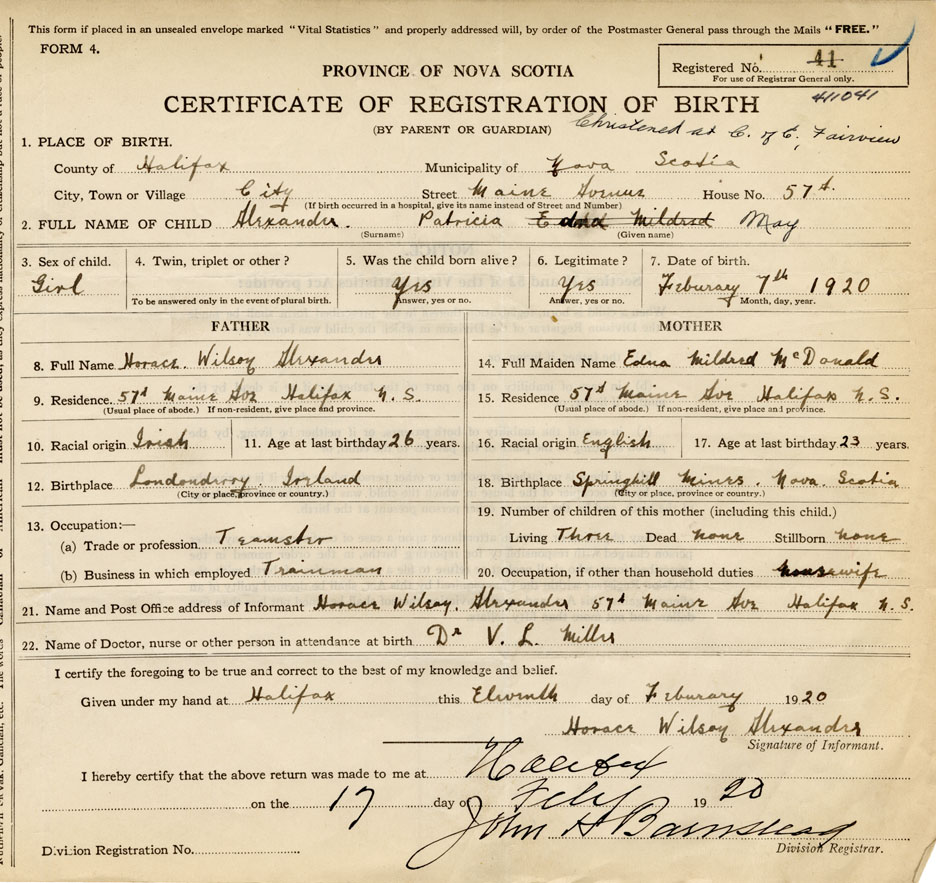 This form if placed in an unsealed envelope marked "Vital Statistics" and properly addressed will, by order of the Postmaster General pass through the Mails "FREE."
FORM 4.
Registered No. 41
For use of Registrar General only.
PROVINCE OF NOVA SCOTIA
41041
CERTIFICATE OF REGISTRATION OF BIRTH
(BY PARENT OR GUARDIAN)
Christened at C. of E, Fairview
1. PLACE OF BIRTH.
County of Halifax Municipality of Nova Scotia
City, Town or Village City Street Maine Avenue House No. 57A
(If birth occurred in a hospital, give its name instead of Street and Number)
2. FULL NAME OF CHILD Alexander. Patricia Edna Mildred May
(Surname) (Given name)
3. Sex of child. 4. Twin, triplet or other? 5. Was the child born alive? 6. Legitimate? 7. Date of birth.
Girl Yes Yes Feburary 7th 1920
To be answered only in the event of plural birth. Answer, yes or no. Answer, yes or no. Month, day, year.
FATHER
8. Full Name Horace Wilson Alexander
9. Residence. 57A Maine Ave Halifax N.S.
(Usual place of abode.) If non-resident, give place and province.
10. Racial origin Irish 11. Age at last birthday 26 years.
12. Birthplace Londonderry Ireland
(City or place, province or country.)
13. Occupation:—
(a) Trade or profession Teamster
(b) Business in which employed Trainman
MOTHER
14. Full Maiden Name Edna Mildred McDonald
15. Residence 57A Maine Ave Halifax N.S.
(Usual place of abode.) If non-resident, give place and province.
16. Racial origin English 17. Age at last birthday 23 years.
18. Birthplace Springhill Mines. Nova Scotia
(City or place, province or country.)
19. Number of children of this mother (including this child.)
Living Three Dead none Stillborn none
20. Occupation, if other than household duties housewife
21. Name and Post Office address of Informant Horace Wilson. Alexander 57A Maine Ave Halifax N.S.
22. Name of Doctor, nurse or other person in attendance at birth Dr V. L. Miller
I certify the foregoing to be true and correct to the best of my knowledge and belief.
Given under my hand at Halifax this Eleventh day of Feburary 1920
Horace Wilson Alexander
Signature of Informant.
I hereby certify that the above return was made to me at Halifax
on the 17 day of Feby 1920
John H Barnstead
Division Registrar.
Division Registration No.